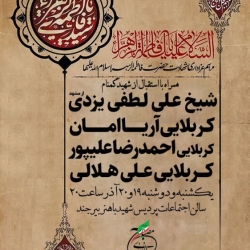 السلام علیک یا فاطمة الزهرا
مراسم عزاداری شهادت حضرت فاطمه زهرا سلام الله علیها
همراه با استقبال از شهید گمنام
شیخ علی لطفی یزدی از مشهد
کربلایی آریا امان
کربلایی احمدرضا علیپور
کربلایی علی هلالی
یکشنبه و دوشنبه ۱۹ و ۲۰ آذر ساعت ۲۰
سالن اجتماعات پردیس شهید باهنر بیرجند